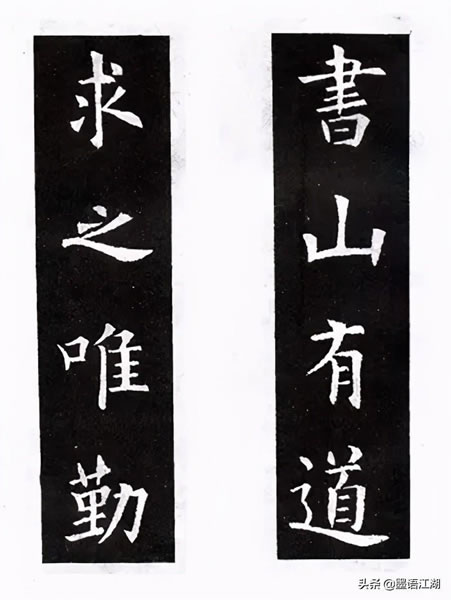 書山有道
求之唯勤
头条 @墨语江湖